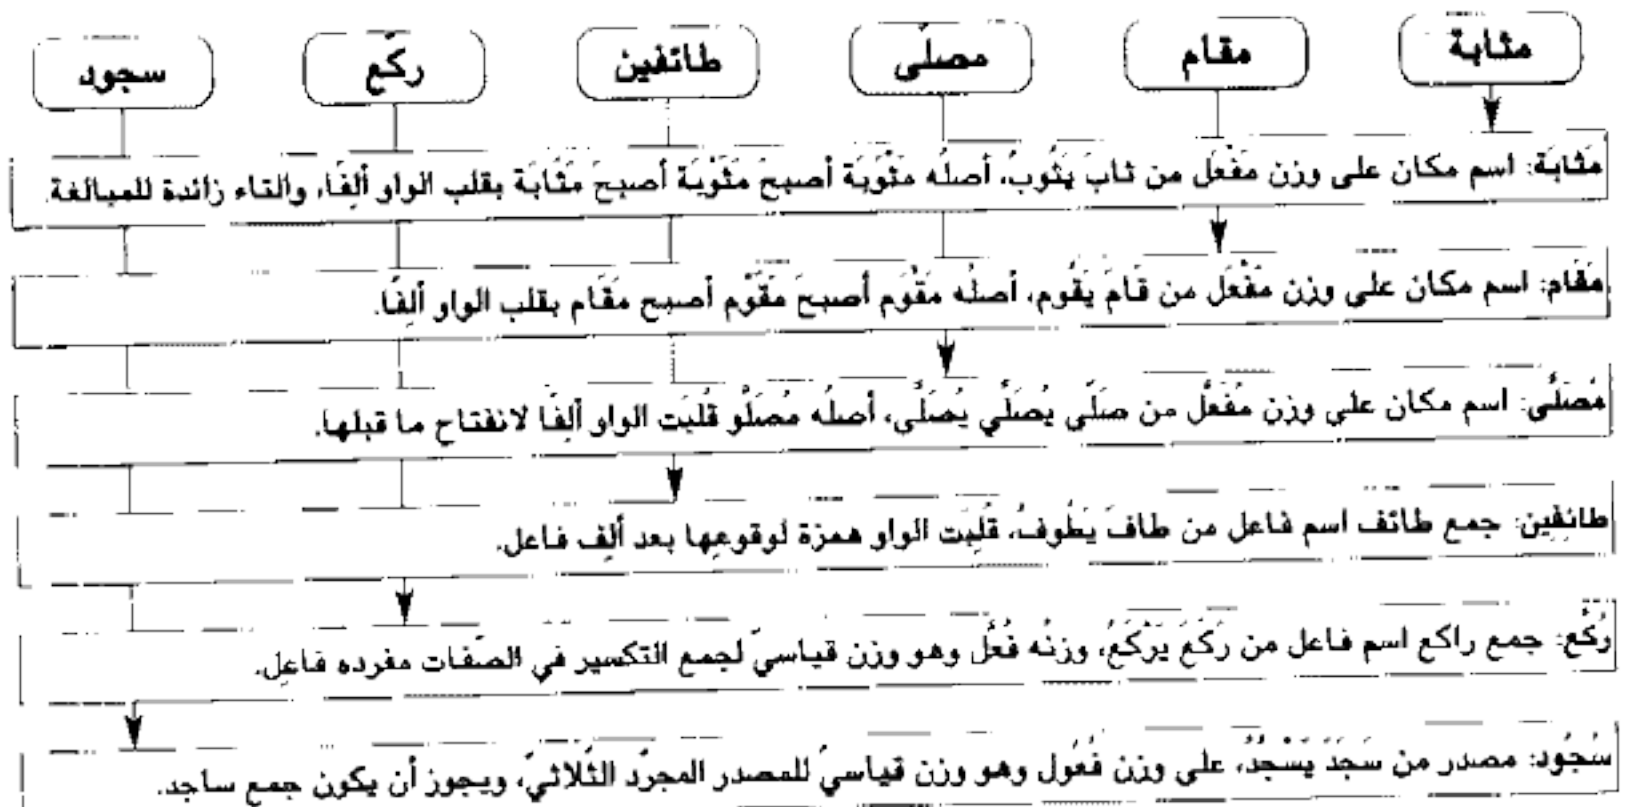 مثابة
مقام
مصلّى
طائفين
ركّع
سجود
مَثابَة: اسم مكان على وزن مَفْعَل من ثابَ يَثُوبُ، أصلُه مَثْوَبَة أصبحَ مَثَوْبَة أصبحَ مَثَابَة بقلب الواو ألِفًا، والتاء زائدة للمبالغة.
مَقَام: اسم مكان على وزن مَفْعَل من قَامَ يَقُوم، أصلُه مَقْوَم أصبحَ مَقَوْم أصبح مَقَام بقلب الواو ألِفًا.
مُصَلَّى: اسم مكان على وزن مُفَعَّل من صَلَّى يُصَلِّي يُصَلَّى، أصلُه مُصَلَّو قُلبَت الواو ألِفًا لانفتاح ما قبلها.
طائِفِين: جمع طائف اسم فاعل من طافَ يَطُوفُ، قُلِبَت الواو همزة لوقوعِها بعد ألِف فاعل.
رُكَّع: جمع راكع اسم فاعل من رَكَعَ يَرْكَعُ، وزنُه فُعَّل وهو وزن قياسيّ لجمع التكسير في الصّفات مفرده فاعِل.
سُجُود: مصدر من سَجَدَ يَسْجُدُ، على وزن فُعُول وهو وزن قياسيّ للمصدر المجرّد الثّلاثيّ، ويجوز أن يكون جمع ساجد.